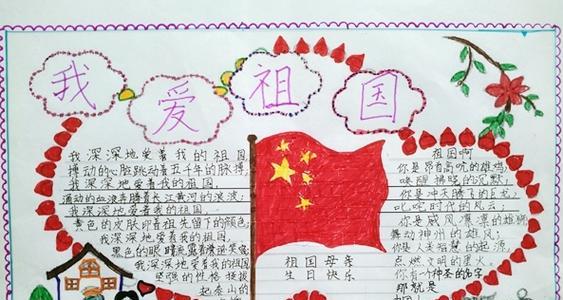 我爱祖国
我深深地爱着我的祖国
搏动的心脏跳动着五千年的脉搏
我深深地爱着我的祖国,
涌动的血液奔腾着长江黄河的浪波;
我深深地爱着我的祖国
黄色的皮肤印着祖先留下的颜色;
我深深地爱着我的祖国.
黑色的眼睛
我深深地爱着我的祖国
坚强的性格挺拔
起泰山的
祖国母亲
生日快乐
祖国啊
你是昂首高吭的雄鸡,
唤醒拂晓的沉默,
你是冲天腾飞的巨龙,
叱咤时代的风云,
你是威风凛凛的雄狮
舞动神州的雄风;
你是人类智慧的起源,
点燃文明的星火。
你有一个神圣的名字
那就是